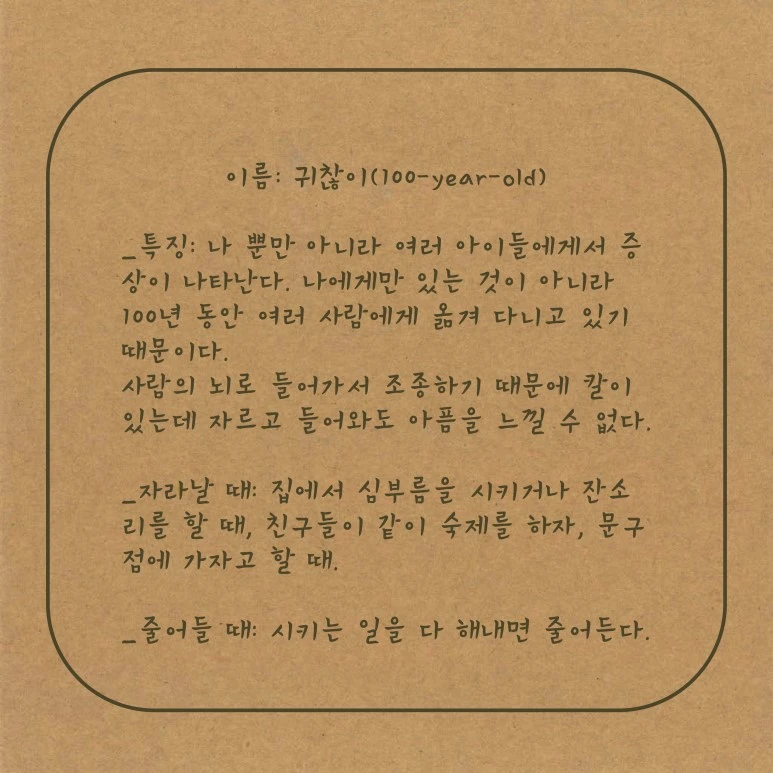 이름: 귀찮이(100-year-old)
_특징: 나 뿐만 아니라 여러 아이들에게서 증
상이 나타난다. 나에게만 있는 것이 아니라
100년 동안 여러 사람에게 옮겨 다니고 있기
때문이다.
사람의 뇌로 들어가서 조종하기 때문에 칼이
있는데 자르고 들어와도 아픔을 느낄 수 없다.
_자라날 때: 집에서 심부름을 시키거나 잔소
리를 할 때, 친구들이 같이 숙제를 하자, 문구
점에 가자고 할 때.
_줄어들 때: 시키는 일을 다 해내면 줄어든다.